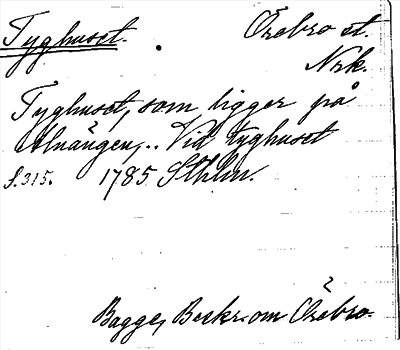 Tyghuset. Örebro st.
Nrk.
Tyghuset, som ligger på
Alnängen,.. Vid tyghuset
s. 315. 1785 Sthlm.
Bagge, Beskr. om Örebro.